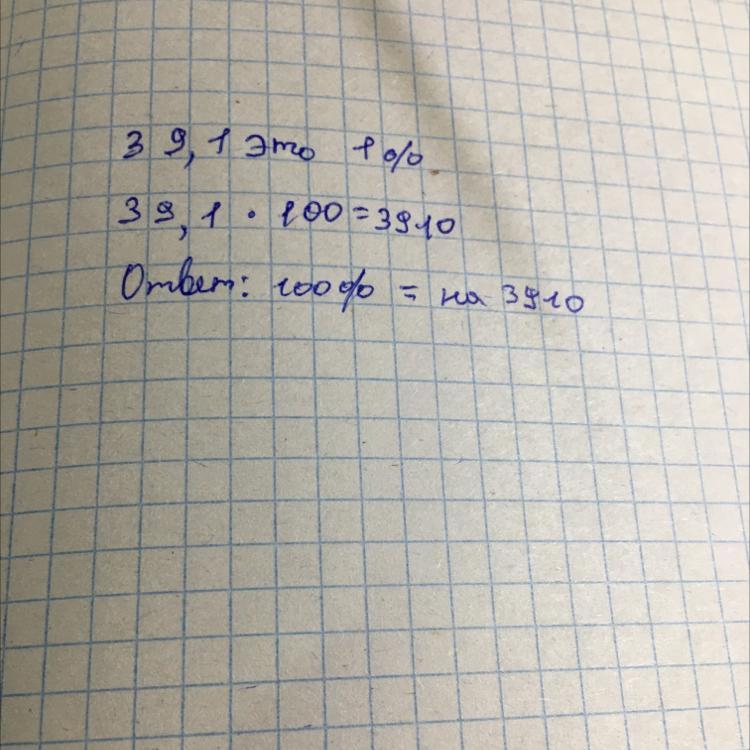 39,1 Это 1%
39,1 · 100 = 3910
Ответ: 100% = на 3910